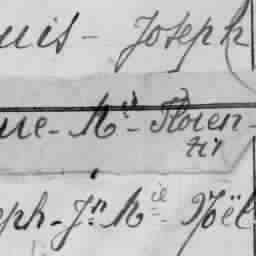 uis - Joseph
ue - Mie - Floren-
tin
eph - Jn Mie - Noël